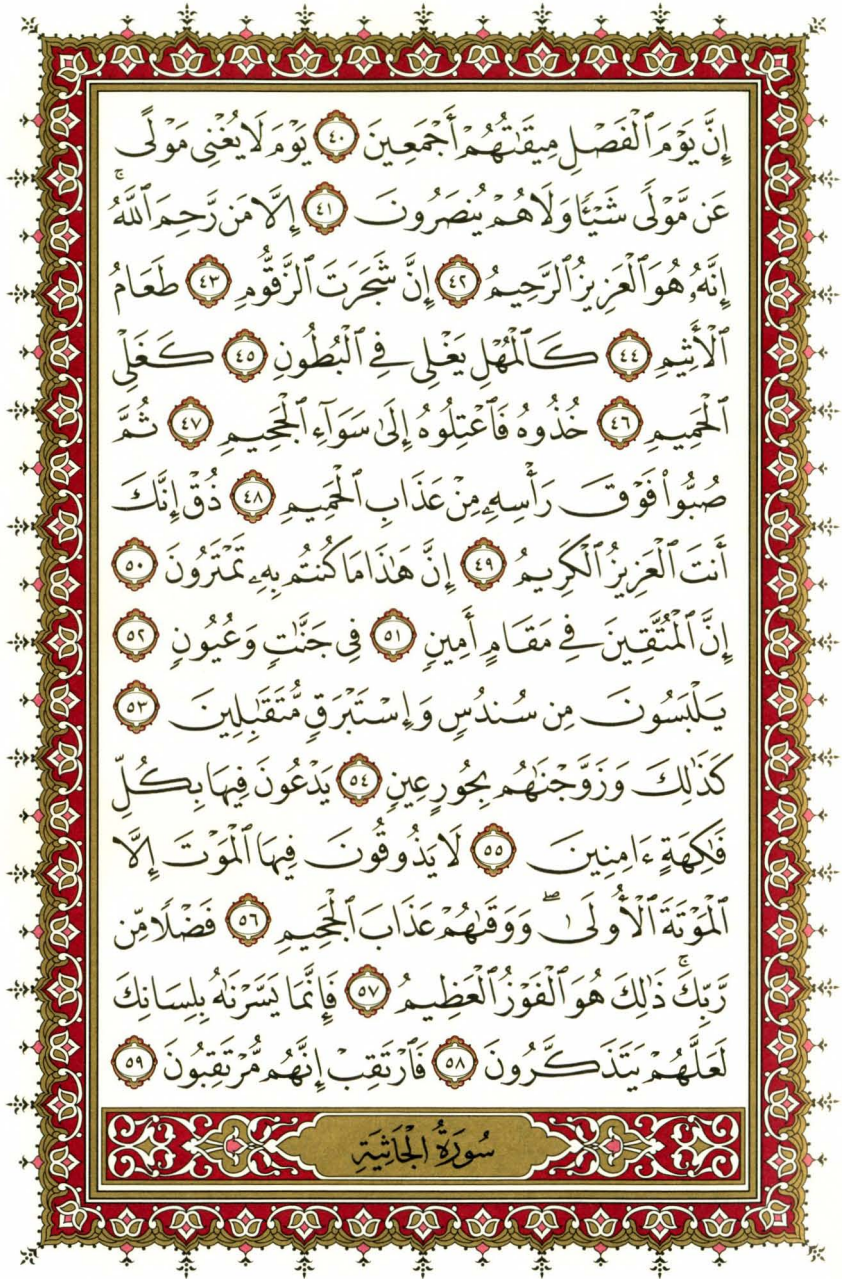 إِنَّ يَوْمَ ٱلْفَصْلِ مِيقَـٰتُهُمْ أَجْمَعِينَ ٤٠ يَوْمَ لَا يُغْنِى مَوْلًى
عَن مَّوْلًى شَيْـًٔا وَلَا هُمْ يُنصَرُونَ ٤١ إِلَّا مَن رَّحِمَ ٱللَّهُ ۚ
إِنَّهُۥ هُوَ ٱلْعَزِيزُ ٱلرَّحِيمُ ٤٢ إِنَّ شَجَرَتَ ٱلزَّقُّومِ ٤٣ طَعَامُ
ٱلْأَثِيمِ ٤٤ كَٱلْمُهْلِ يَغْلِى فِى ٱلْبُطُونِ ٤٥ كَغَلْىِ
ٱلْحَمِيمِ ٤٦ خُذُوهُ فَٱعْتِلُوهُ إِلَىٰ سَوَآءِ ٱلْجَحِيمِ ٤٧ ثُمَّ
صُبُّوا۟ فَوْقَ رَأْسِهِۦ مِنْ عَذَابِ ٱلْحَمِيمِ ٤٨ ذُقْ إِنَّكَ
أَنتَ ٱلْعَزِيزُ ٱلْكَرِيمُ ٤٩ إِنَّ هَـٰذَا مَا كُنتُم بِهِۦ تَمْتَرُونَ ٥٠
إِنَّ ٱلْمُتَّقِينَ فِى مَقَامٍ أَمِينٍ ٥١ فِى جَنَّـٰتٍ وَعُيُونٍ ٥٢
يَلْبَسُونَ مِن سُندُسٍ وَإِسْتَبْرَقٍ مُّتَقَـٰبِلِينَ ٥٣
كَذَٰلِكَ وَزَوَّجْنَـٰهُم بِحُورٍ عِينٍ ٥٤ يَدْعُونَ فِيهَا بِكُلِّ
فَـٰكِهَةٍ ءَامِنِينَ ٥٥ لَا يَذُوقُونَ فِيهَا ٱلْمَوْتَ إِلَّا
ٱلْمَوْتَةَ ٱلْأُولَىٰ ۖ وَوَقَىٰهُمْ عَذَابَ ٱلْجَحِيمِ ٥٦ فَضْلًا مِّن
رَّبِّكَ ۚ ذَٰلِكَ هُوَ ٱلْفَوْزُ ٱلْعَظِيمُ ٥٧ فَإِنَّمَا يَسَّرْنَـٰهُ بِلِسَانِكَ
لَعَلَّهُمْ يَتَذَكَّرُونَ ٥٨ فَٱرْتَقِبْ إِنَّهُم مُّرْتَقِبُونَ ٥٩
سُورَةُ الْجَاثِيَةِ